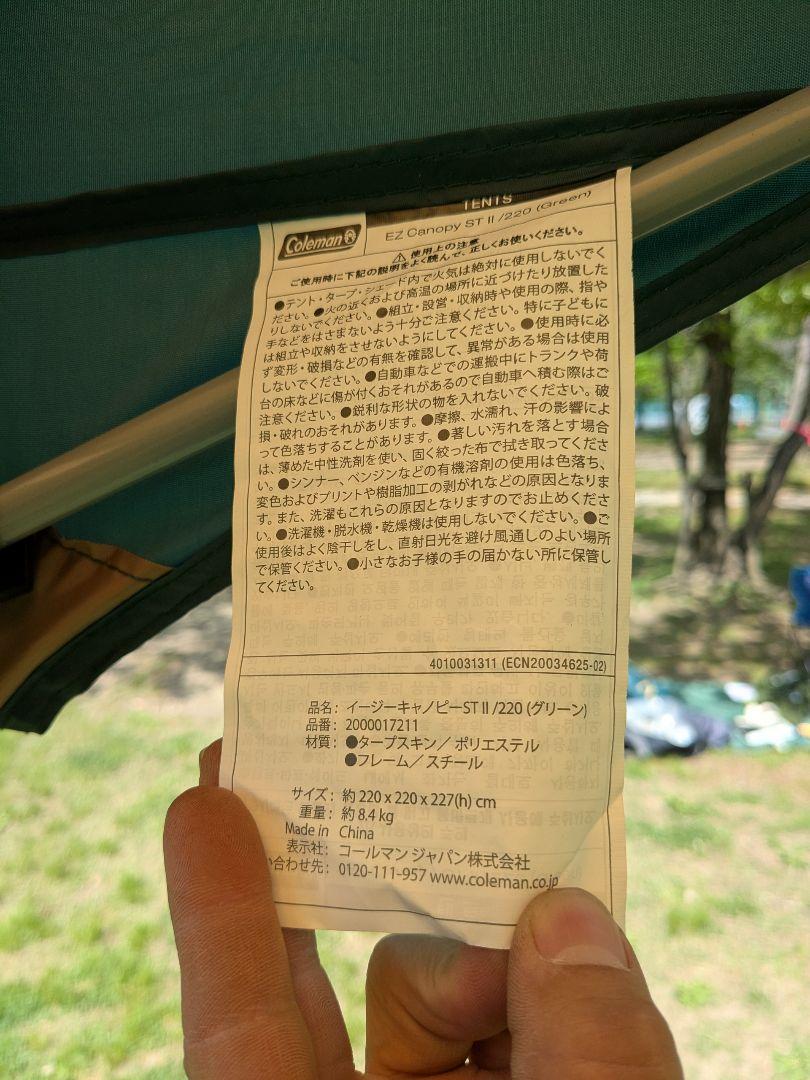 TENTS
Coleman
EZ Canopy ST II /220 (Green)
⚠ 使用上の注意
ご使用時に下記の説明をよく読んで、正しくお使いください。
●テント・タープ・シェード内で火気は絶対に使用しないでく
ださい。●火の近くおよび高温の場所に近づけたり放置した
りしないでください。●組立・設営・収納時や使用の際、指や
手などをはさまないよう十分ご注意ください。特に子どもに
は組立や収納をさせないようにしてください。●使用時に必
ず変形・破損などの有無を確認して、異常がある場合は使用
しないでください。●自動車などでの運搬中にトランクや荷
台の床などに傷が付くおそれがあるので自動車へ積む際はご
注意ください。●鋭利な形状の物を入れないでください。破
損・破れのおそれがあります。●摩擦、水濡れ、汗の影響によ
って色落ちすることがあります。●著しい汚れを落とす場合
は、薄めた中性洗剤を使い、固く絞った布で拭き取ってくださ
い。●シンナー、ベンジンなどの有機溶剤の使用は色落ち、
変色およびプリントや樹脂加工の剥がれなどの原因となりま
す。また、洗濯もこれらの原因となりますのでお止めくださ
い。●洗濯機・脱水機・乾燥機は使用しないでください。●ご
使用後はよく陰干しをし、直射日光を避け風通しのよい場所
で保管ください。●小さなお子様の手の届かない所に保管し
てください。
4010031311 (ECN20034625-02)
品名： イージーキャノピーST II /220 (グリーン)
品番： 2000017211
材質： ●タープスキン／ ポリエステル
●フレーム／ スチール
サイズ： 約 220 x 220 x 227(h) cm
重量： 約 8.4 kg
Made in China
表示社： コールマン ジャパン株式会社
い合わせ先： 0120-111-957 www.coleman.co.jp